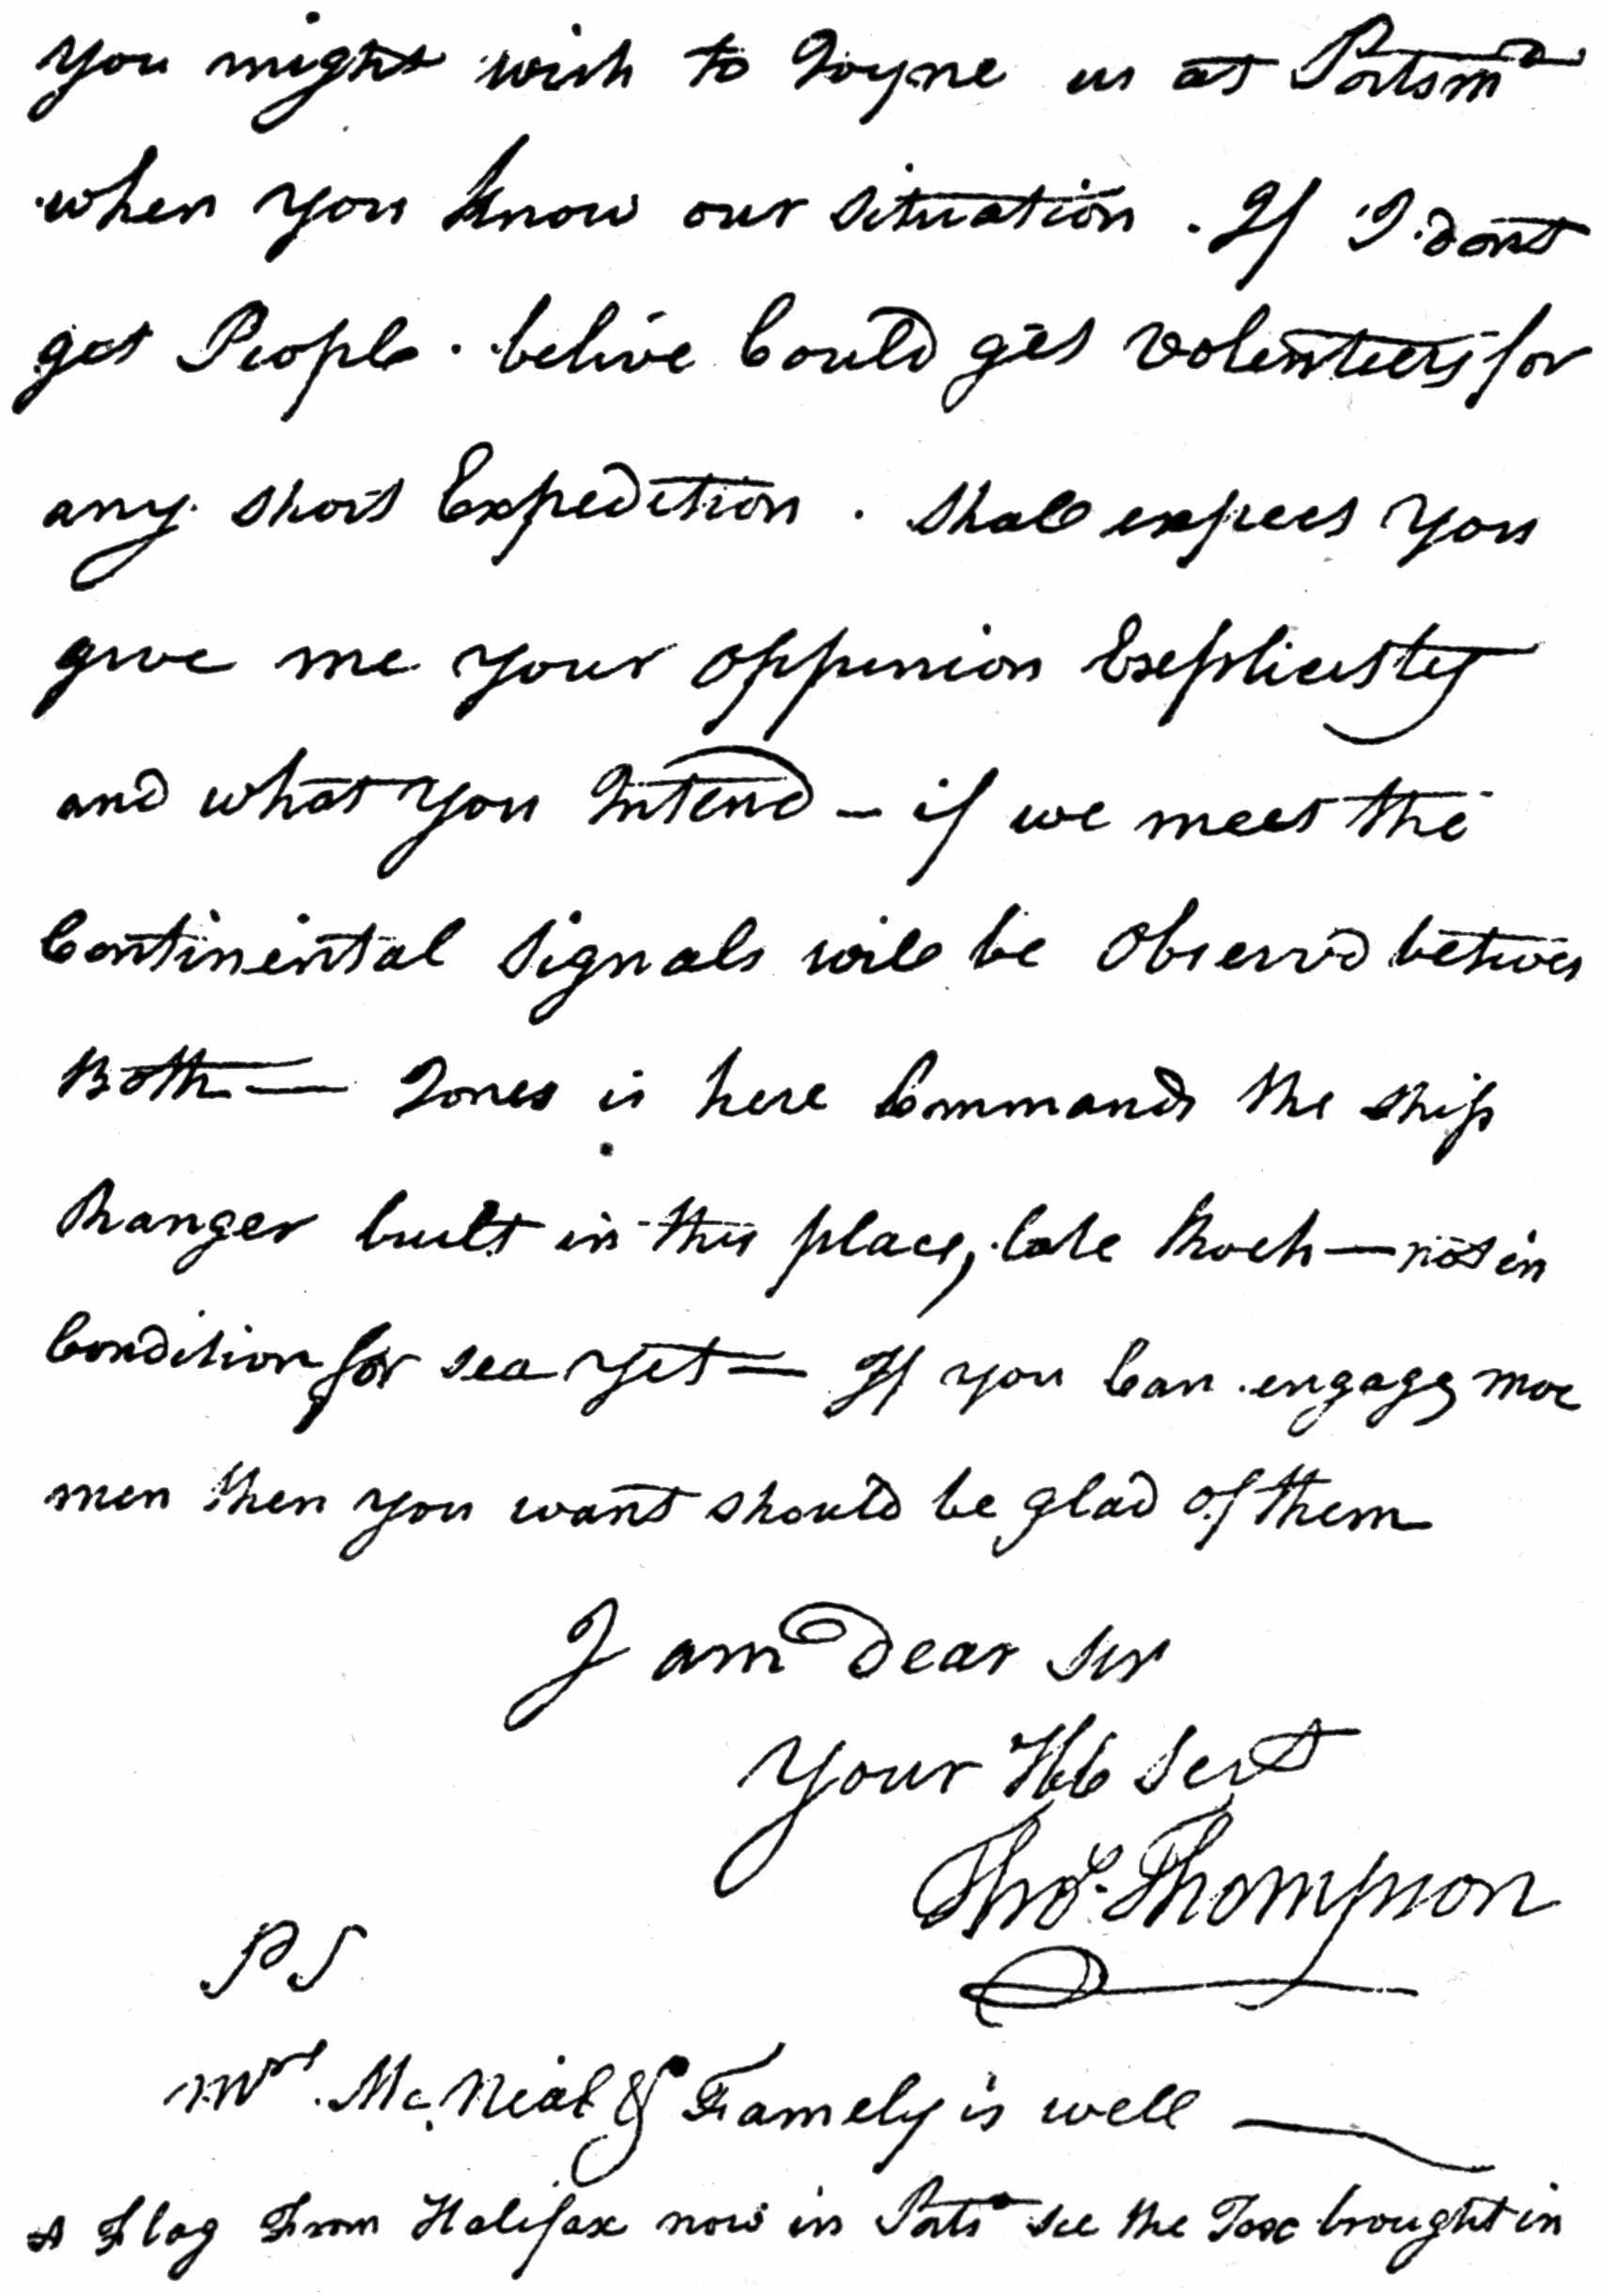 you might wish to Joyne us at Portsmo
when you know our situation . If I dont
get People . belive Could get Volenteers for
any short Expedition . shall expect you
give me your oppinion Explicitly
and what you Intend - if we meet the
Continental Signals will be Observd between
Both — Jones is here Commands the ship
Ranger built in this place, late Roch — not in
Condition for sea yet — If you Can engage more
men then you want should be glad of them
I am Dear Sir
Your Hb Sert
Thos. Thompson
PS
Mrs. McNeal & Famely is well —
A Flag From Halifax now in see the Fox brought in